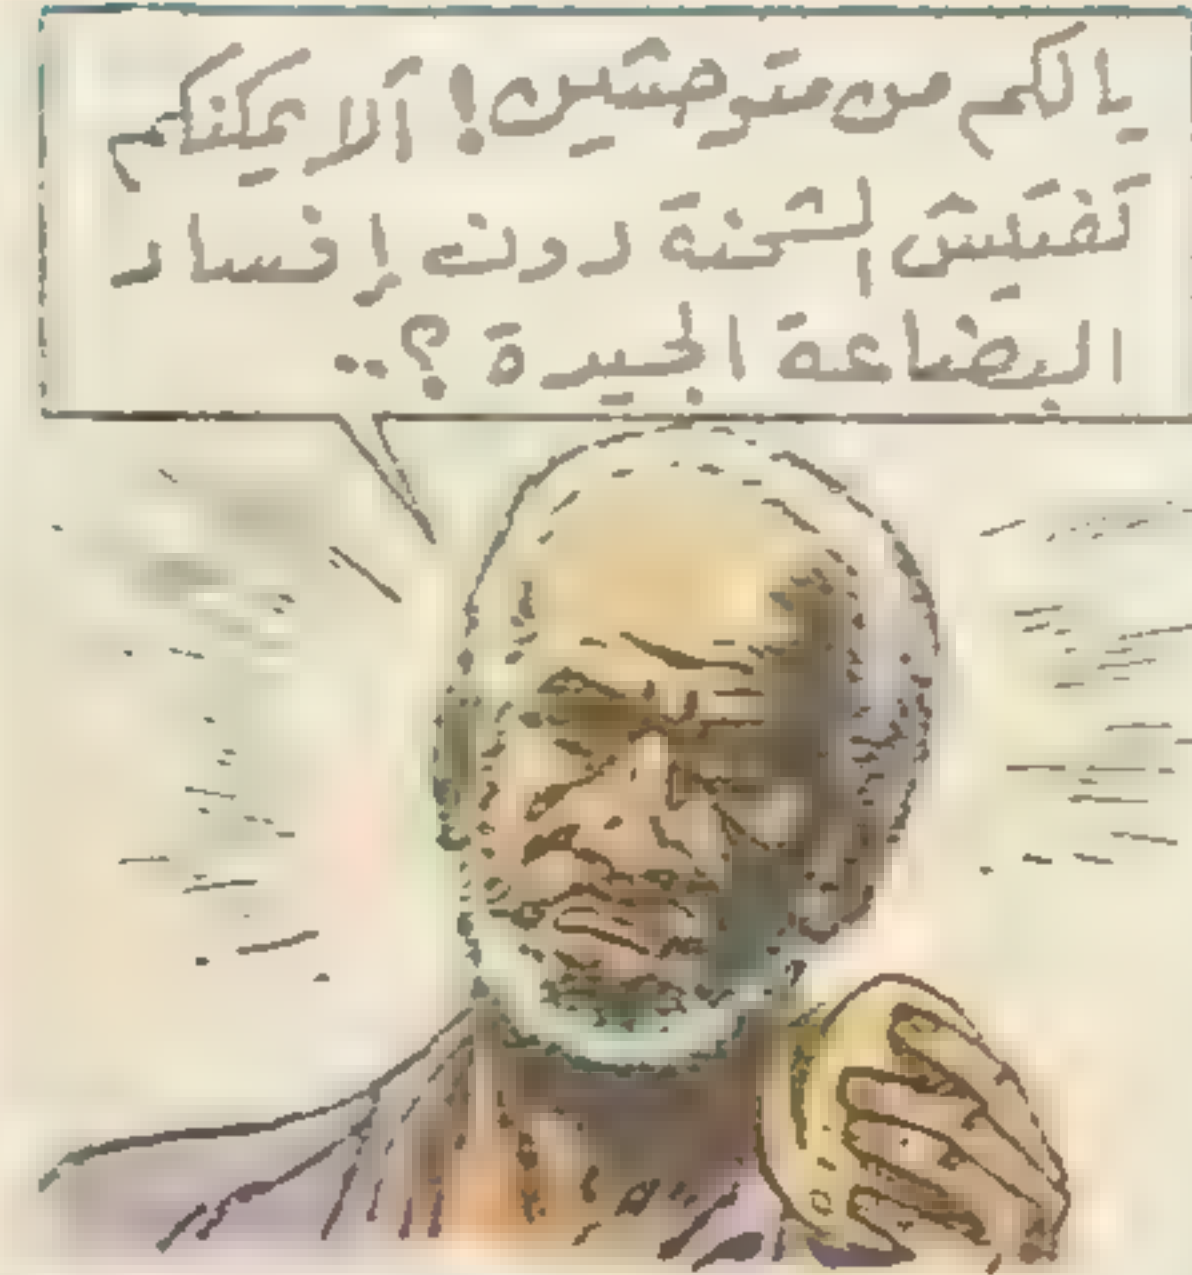 يالكم من متوحشين! ألا يمكنكم
تفتيش الشحنة دون إفساد
البضاعة الجيدة؟..